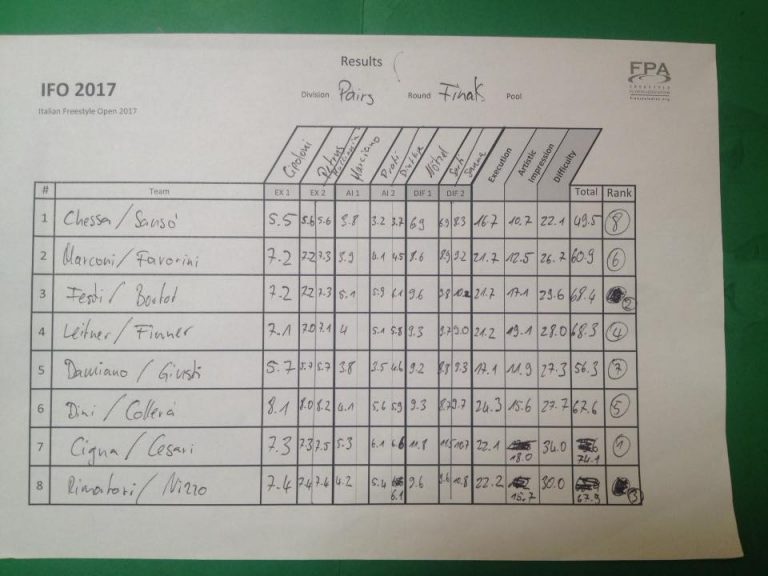 Results
IFO 2017
Italian Freestyle Open 2017
Division Pairs Round Finals Pool
FPA
# Team EX 1 EX 2 AI 1 AI 2 DIF 1 DIF 2 Execution Artistic Impression Difficulty Total Rank
1 Chessa / Sansó 5.5 5.6 5.6 3.8 3.2 3.7 6.9 6.9 8.3 16.7 10.7 22.1 49.5 8
2 Marconi / Favorini 7.2 7.2 7.3 3.9 4.1 4.5 8.6 8.9 9.2 21.7 12.5 26.7 60.9 6
3 7.2 7.2 7.3 5.1 5.9 6.1 9.6 9.8 21.7 17.1 29.6 68.4 2
4 Leitner / Finner 7.1 7.0 7.1 4 5.1 5.8 9.3 9.7 9.0 21.2 19.1 28.0 68.3 4
5 Damiano / Giusti 5.7 5.7 5.7 3.8 3.5 4.6 9.2 8.8 9.3 17.1 11.9 27.3 56.3 7
6 Dini / Collerà 8.1 8.0 8.2 4.1 5.6 5.9 9.3 8.7 9.7 24.3 15.6 27.7 67.6 5
7 Cigna / Cesari 7.3 7.3 7.5 5.3 6.1 6.6 11.8 11.5 10.7 22.1 18.0 34.0 74.1 1
8 Rimatori / Nizzo 7.4 7.4 7.6 4.2 5.4 6.1 9.6 9.6 10.8 22.2 15.7 30.0 67.9 3